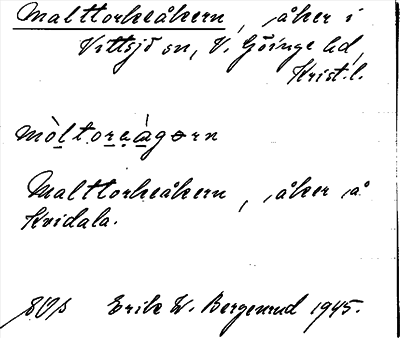 Malttorkeåkern, åker i
Vittsjö sn, V. Göinge hd,
Krist.l.
mòltoreàgərn
Malttorkeåkern, åker å
Kvidala.
Erik W. Bergenrud 1945.